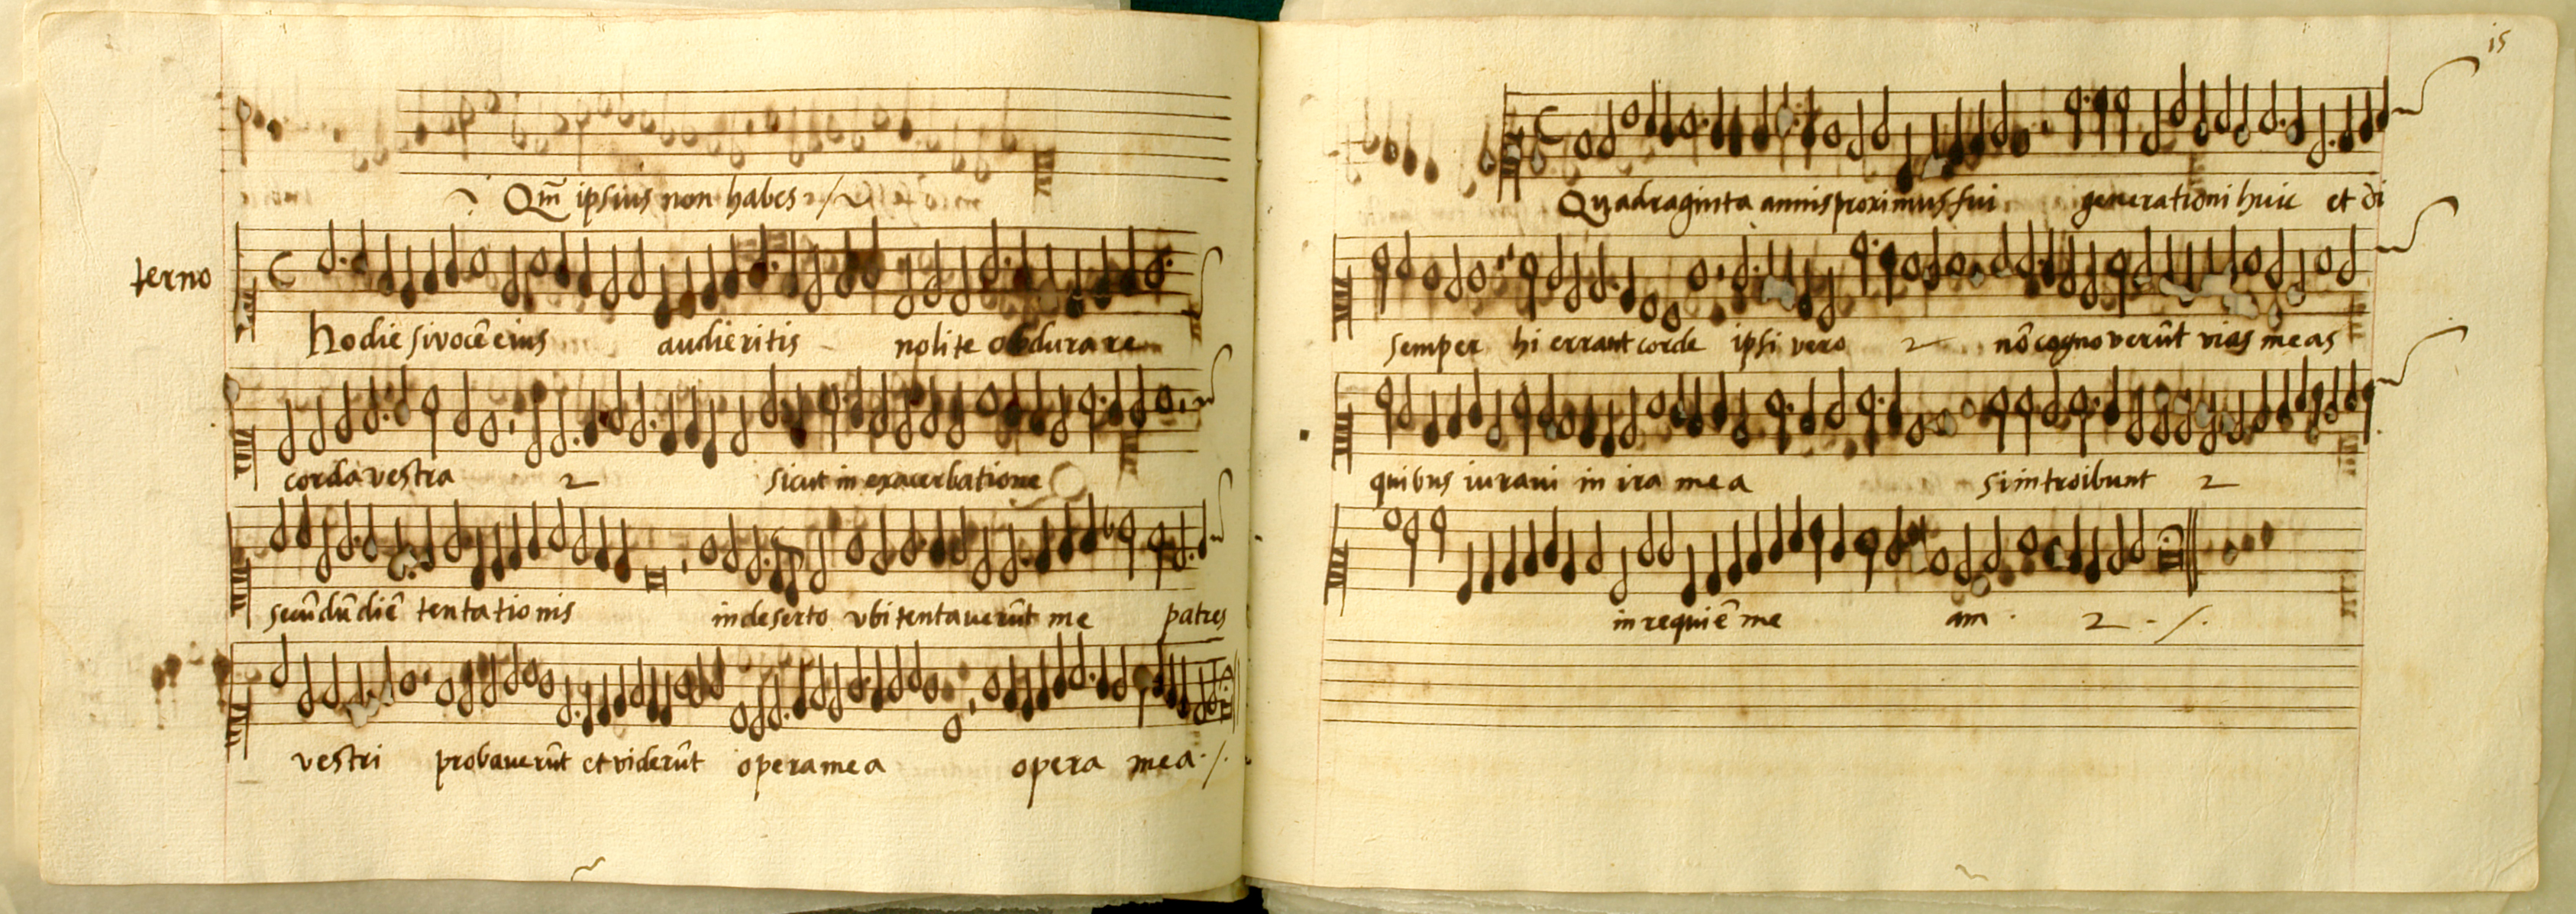 Qm̄ ipsius non habes
terno
hodie si vocē eius audieritis nolite obdurare
corda vestra 2 sicut in exacerbatione
secūdū diē tentationis in deserto vbi tentauerūt me patres
vestri probauerūt et viderūt opera mea opera mea ·/.
15
Quadraginta annis proximus fui generationi huic et
semper hi errant corde ipsi vero 2 nō cognoverūt vias meas
quibus iuraui in ira mea si introibunt 2
in requiē me am · 2 · /.